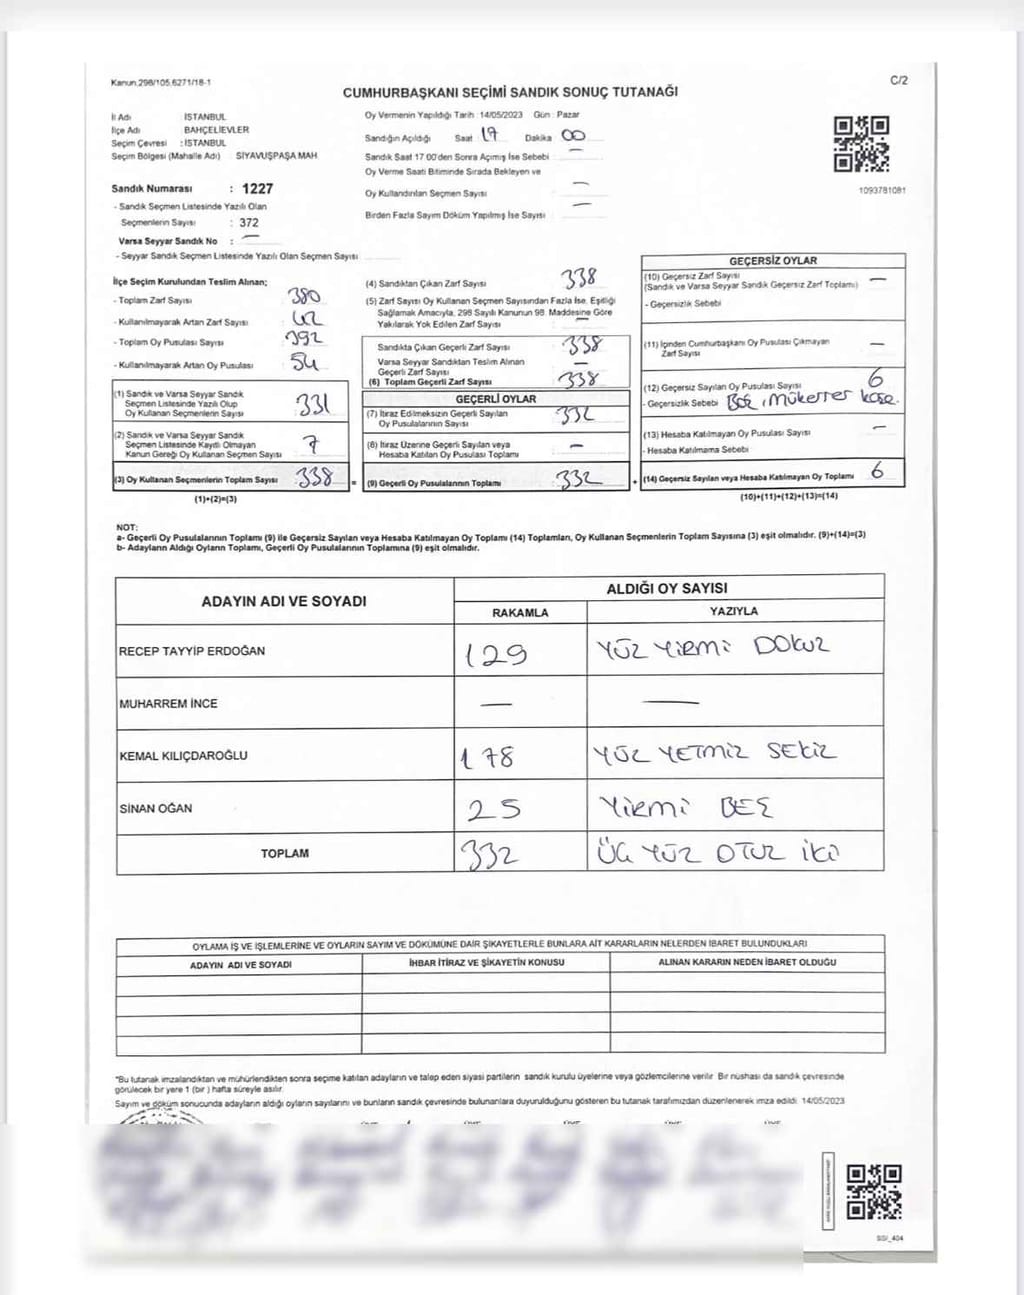 Kanun.298/105.6271/18-1
C/2
CUMHURBAŞKANI SEÇİMİ SANDIK SONUÇ TUTANAĞI
İl Adı İSTANBUL
İlçe Adı BAHÇELİEVLER
Seçim Çevresi : İSTANBUL
Seçim Bölgesi (Mahalle Adı) SİYAVUŞPAŞA MAH
Sandık Numarası : 1227
- Sandık Seçmen Listesinde Yazılı Olan
Seçmenlerin Sayısı : 372
Varsa Seyyar Sandık No : —
- Seyyar Sandık Seçmen Listesinde Yazılı Olan Seçmen Sayısı
Oy Vermenin Yapıldığı Tarih : 14/05/2023 Gün : Pazar
Sandığın Açıldığı Saat 17 Dakika 00
Sandık Saat 17 00'den Sonra Açımış İse Sebebi —
Oy Verme Saati Bitiminde Sırada Bekleyen ve
Oy Kullandırılan Seçmen Sayısı —
Birden Fazla Sayım Döküm Yapılmış İse Sayısı —
1093781081
İlçe Seçim Kurulundan Teslim Alınan;
- Toplam Zarf Sayısı 380
- Kullanılmayarak Artan Zarf Sayısı 42
- Toplam Oy Pusulası Sayısı 392
- Kullanılmayarak Artan Oy Pusulası 54
(1) Sandık ve Varsa Seyyar Sandık
Seçmen Listesinde Yazılı Olup
Oy Kullanan Seçmenlerin Sayısı 331
(2) Sandık ve Varsa Seyyar Sandık
Seçmen Listesinde Kayıtlı Olmayan
Kanun Gereği Oy Kullanan Seçmen Sayısı 7
(3) Oy Kullanan Seçmenlerin Toplam Sayısı 338 =
(1)+(2)=(3)
(4) Sandıktan Çıkan Zarf Sayısı 338
(5) Zarf Sayısı Oy Kullanan Seçmen Sayısından Fazla İse, Eşitliği
Sağlamak Amacıyla, 298 Sayılı Kanunun 98. Maddesine Göre
Yakılarak Yok Edilen Zarf Sayısı —
Sandıkta Çıkan Geçerli Zarf Sayısı 338
Varsa Seyyar Sandıktan Teslim Alınan
Geçerli Zarf Sayısı —
(6) Toplam Geçerli Zarf Sayısı 338
GEÇERLİ OYLAR
(7) İtiraz Edilmeksizin Geçerli Sayılan
Oy Pusulalarının Sayısı 332
(8) İtiraz Üzerine Geçerli Sayılan veya
Hesaba Katılan Oy Pusulası Toplamı —
(9) Geçerli Oy Pusulalarının Toplamı 332 +
GEÇERSİZ OYLAR
(10) Geçersiz Zarf Sayısı
(Sandık ve Varsa Seyyar Sandık Geçersiz Zarf Toplamı) —
- Geçersizlik Sebebi
(11) İçinden Cumhurbaşkanı Oy Pusulası Çıkmayan
Zarf Sayısı —
(12) Geçersiz Sayılan Oy Pusulası Sayısı 6
- Geçersizlik Sebebi Boş, Mükerrer kaşe.
(13) Hesaba Katılmayan Oy Pusulası Sayısı —
- Hesaba Katılmama Sebebi
(14) Geçersiz Sayılan veya Hesaba Katılmayan Oy Toplamı 6
(10)+(11)+(12)+(13)=(14)
NOT:
a- Geçerli Oy Pusulalarının Toplamı (9) ile Geçersiz Sayılan veya Hesaba Katılmayan Oy Toplamı (14) Toplamları, Oy Kullanan Seçmenlerin Toplam Sayısına (3) eşit olmalıdır. (9)+(14)=(3)
b- Adayların Aldığı Oyların Toplamı, Geçerli Oy Pusulalarının Toplamına (9) eşit olmalıdır.
ADAYIN ADI VE SOYADI ALDIĞI OY SAYISI
RAKAMLA YAZIYLA
RECEP TAYYİP ERDOĞAN 129 YÜZ YİRMİ DOKUZ
MUHARREM İNCE — —
KEMAL KILIÇDAROĞLU 178 YÜZ YETMİZ SEKİZ
SİNAN OĞAN 25 YİRMİ BEŞ
TOPLAM 332 ÜÇ YÜZ OTUZ İKİ
OYLAMA İŞ VE İŞLEMLERİNE VE OYLARIN SAYIM VE DÖKÜMÜNE DAİR ŞİKAYETLERLE BUNLARA AİT KARARLARIN NELERDEN İBARET BULUNDUKLARI
ADAYIN ADI VE SOYADI İHBAR İTİRAZ VE ŞİKAYETİN KONUSU ALINAN KARARIN NEDEN İBARET OLDUĞU
*Bu tutanak imzalandıktan ve mühürlendikten sonra seçime katılan adayların ve talep eden siyasi partilerin sandık kurulu üyelerine veya gözlemcilerine verilir. Bir nüshası da sandık çevresinde
görülecek bir yere 1 (bir ) hafta süreyle asılır.
Sayım ve döküm sonucunda adayların aldığı oyların sayılarını ve bunların sandık çevresinde bulunanlara duyurulduğunu gösteren bu tutanak tarafımızdan düzenlenerek imza edildi. 14/05/2023
SSİ_404